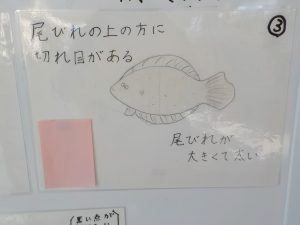 ③
尾びれの上の方に
切れ目がある
尾びれが
大きくて太い
(黒い点が